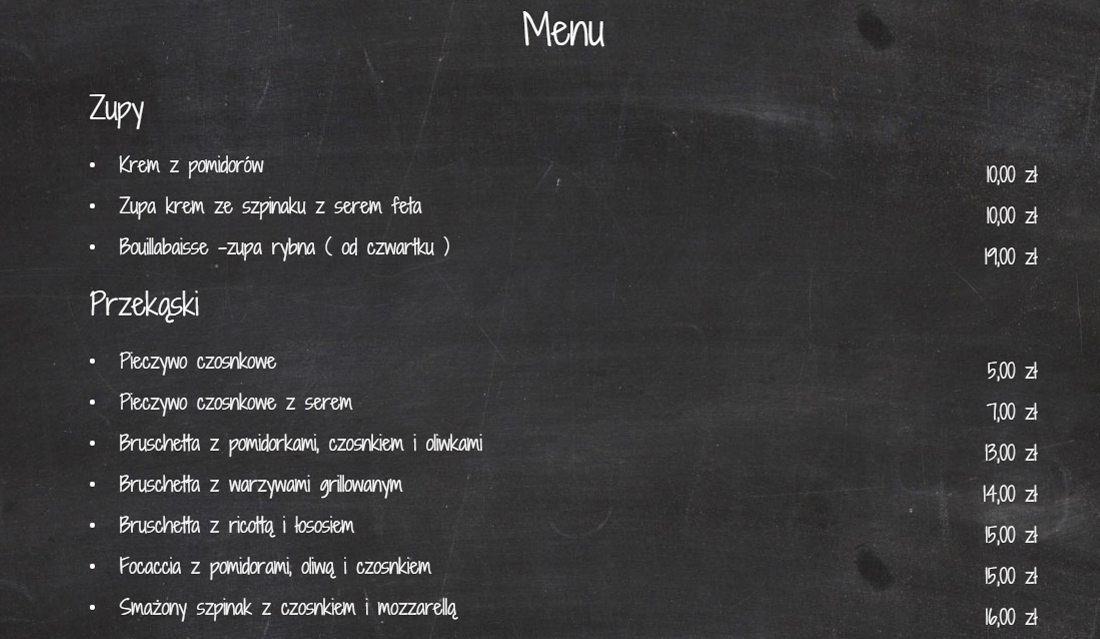 Menu
Zupy
• Krem z pomidorów 10,00 zł
• Zupa krem ze szpinaku z serem feta 10,00 zł
• Bouillabaisse -zupa rybna ( od czwartku ) 19,00 zł
Przekąski
• Pieczywo czosnkowe 5,00 zł
• Pieczywo czosnkowe z serem 7,00 zł
• Bruschetta z pomidorkami, czosnkiem i oliwkami 13,00 zł
• Bruschetta z warzywami grillowanym 14,00 zł
• Bruschetta z ricottą i łososiem 15,00 zł
• Focaccia z pomidorami, oliwą i czosnkiem 15,00 zł
• Smażony szpinak z czosnkiem i mozzarellą 16,00 zł